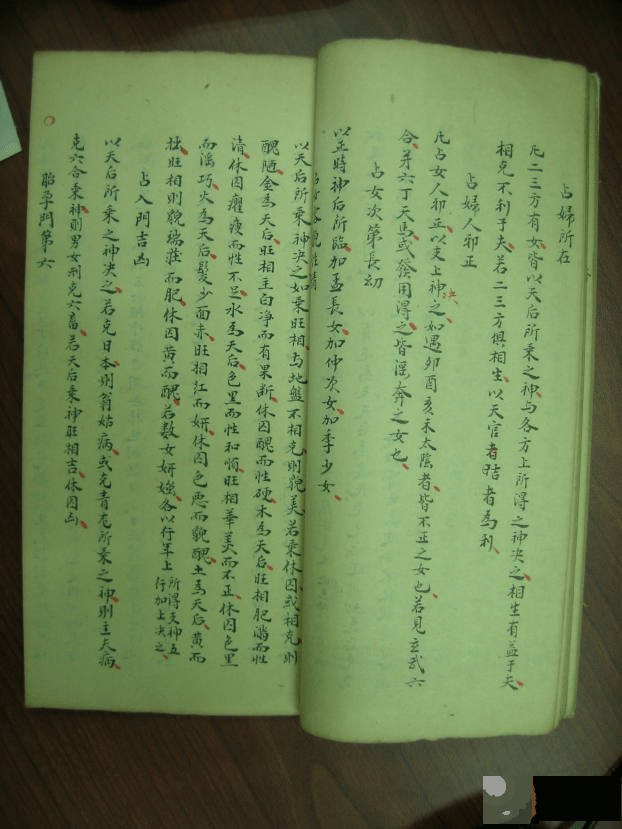 占婦所在
凡二三方有女皆以天后所乘之神与各方上所得之神决之相生有益于夫
相克不利于夫若二三方俱相生以天官者吉者為利
占婦人邪正
凡占女人邪正以支上神决之如遇卯酉亥未太陰者皆不正之女也若見玄武六
合并六丁天馬或發用得之皆淫奔之女也
占女次第長幼
以正時神后所臨加孟長女加仲次女加季少女
以天后所乘之神决之如乘旺相与地盤不相克則貌美若乘休囚或相克則
醜陋金為天后旺相主白净而有果断休囚醜而性硬木為天后旺相肥滿而性
清休囚癯瘦而性不足水為天后色里而性和惆旺相華美而不正休囚色里
而淫巧火為天后髮少面赤旺相紅而妍休囚色悪而貌醜土為天后黄而
拙旺相則貌瑞莊而肥休囚黄而醜若数女妍媸各以行年上所得支神五行加上决之
占入門吉凶
以天后所乘之神决之若克日本則翁姑病或克青龙所乘之神則主夫病
克六合乘神則男女刑克六畜若天后乘神旺相吉休囚凶
胎孕門第六